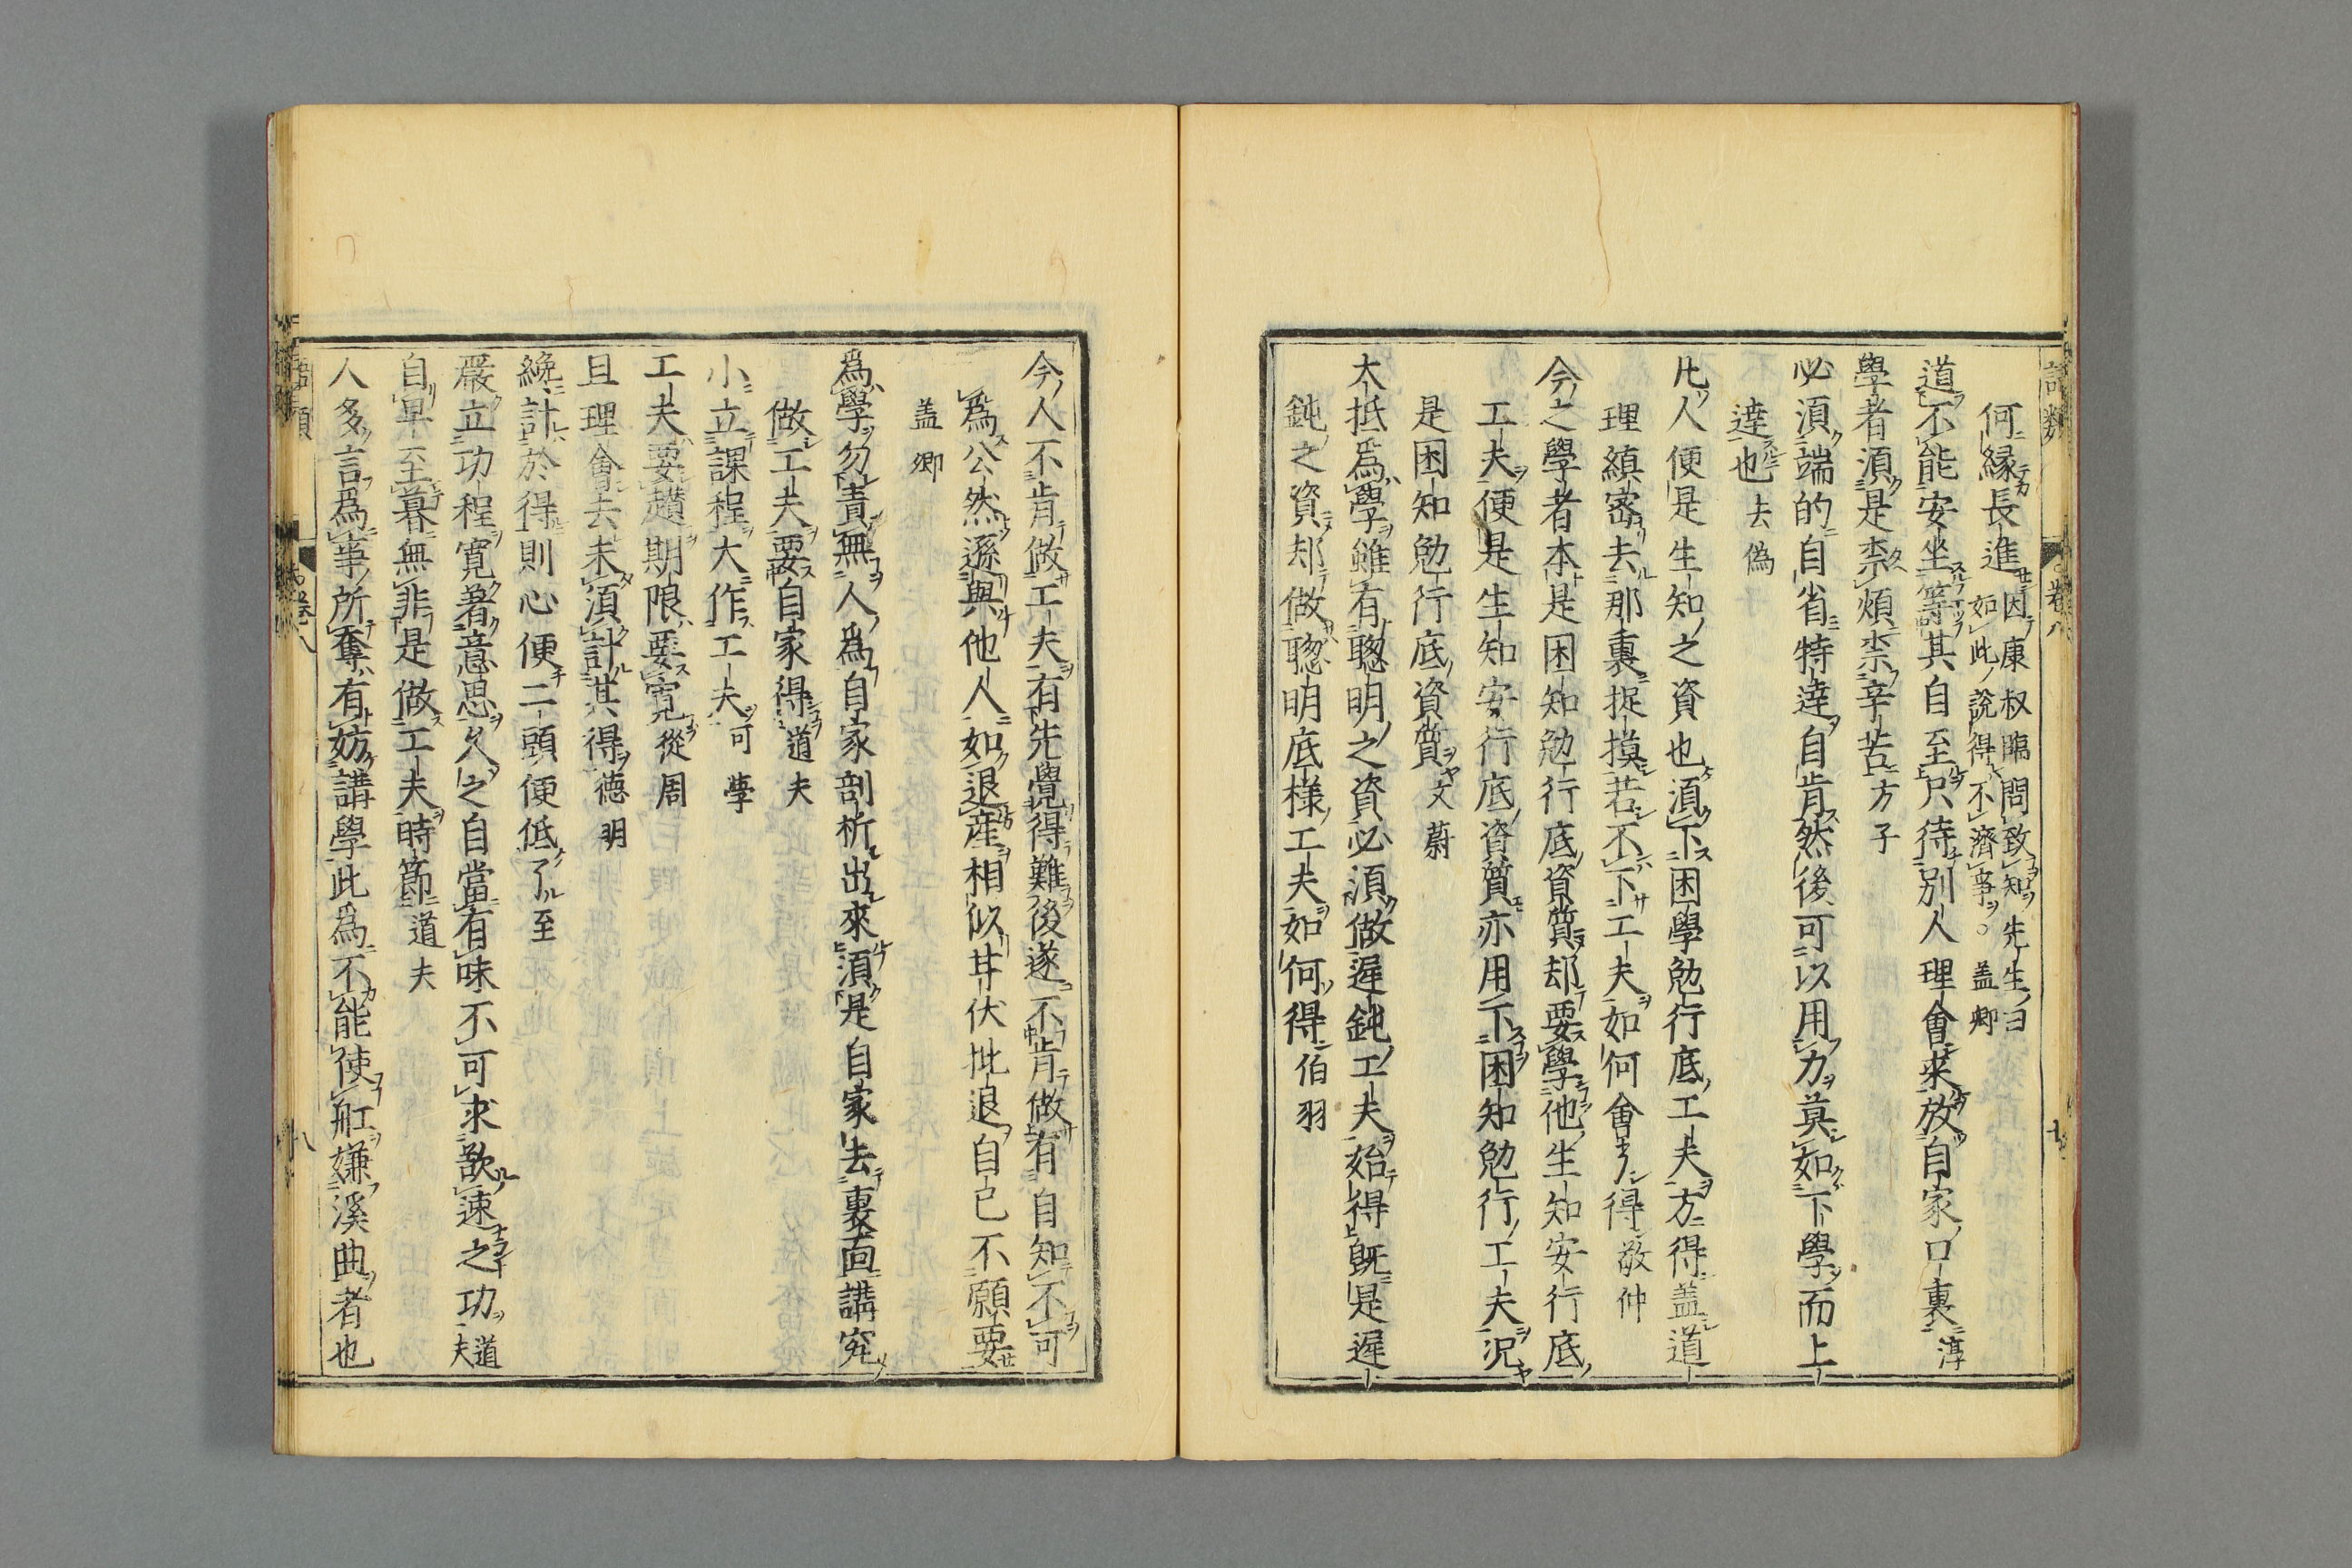 語類
卷八
七
何緣長進因康叔臨問致知先生曰
如此說得不濟事○蓋卿
道不能安坐等其自至只待別人理會來放自家口裏淳
學者須是柰煩柰辛苦方子
必須端的自省特達自肯然後可以用力莫如下學而上
達也去偽
凡人便是生知之資也須下困學勉行底工夫方得蓋道
理縝密去那裏捉摸若不下工夫如何會了得敬仲
今之學者本是困知勉行底資質却要學他生知安行底
工夫便是生知安行底資質亦用下困知勉行工夫况
是困知勉行底資質文蔚
大抵為學雖有聰明之資必須做遲鈍工夫始得既是遲
鈍之資却做聰明底樣工夫如何得伯羽
今人不肯做工夫有先覺得難後遂不肯做有自知不可
為公然遜與他人如退産相似甘伏批退自己不願要
蓋卿
為學勿責無人為自家剖析出來須是自家去裏面講究
做工夫要自家得道夫
小立課程大作工夫可學
工夫要趲期限要寬從周
且理會去未須計其得德明
纔計於得則心便二頭便低了至
嚴立功程寬著意思久之自當有味不可求欲速之功道夫
自早至暮無非是做工夫時節道夫
人多言為事所奪有妨講學此為不能使舡嫌溪曲者也
語類
卷八
八